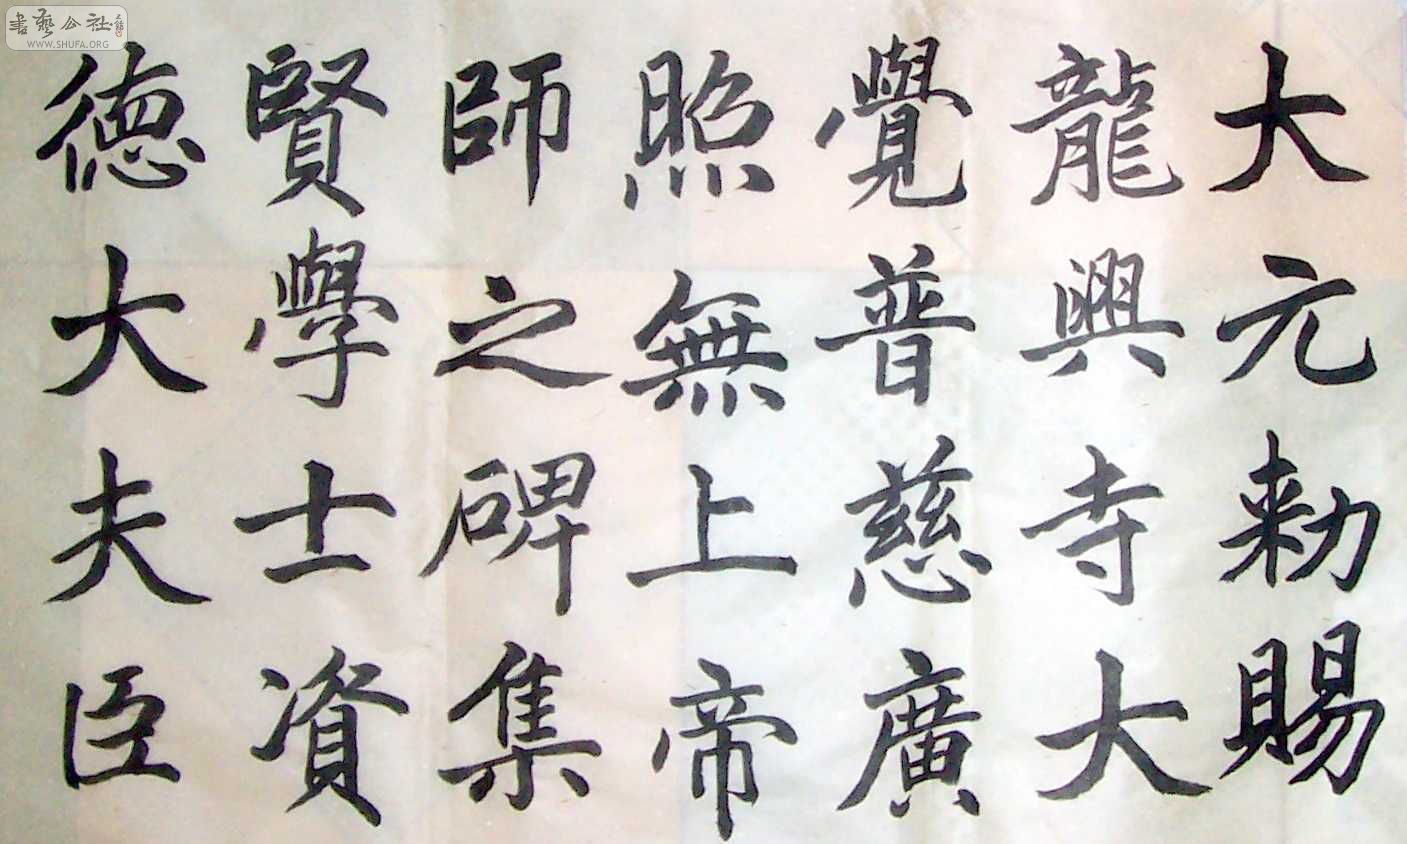 大元勑賜
龍興寺大
覺普慈廣
照無上帝
師之碑集
賢學士資
德大夫臣
書藝公社
WWW.SHUFA.ORG